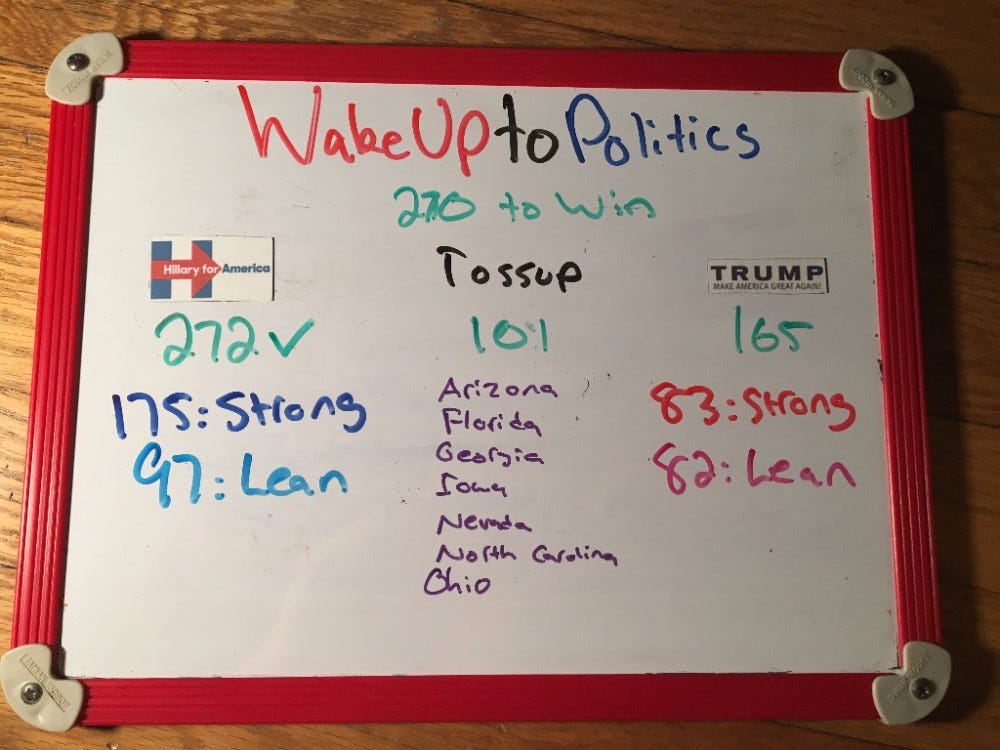 Wake Up to Politics
270 to Win
Hillary for America
Tossup
TRUMP
MAKE AMERICA GREAT AGAIN!
272 ✓
101
165
175: Strong
97: Lean
Arizona
Florida
Georgia
Iowa
Nevada
North Carolina
Ohio
83: Strong
82: Lean